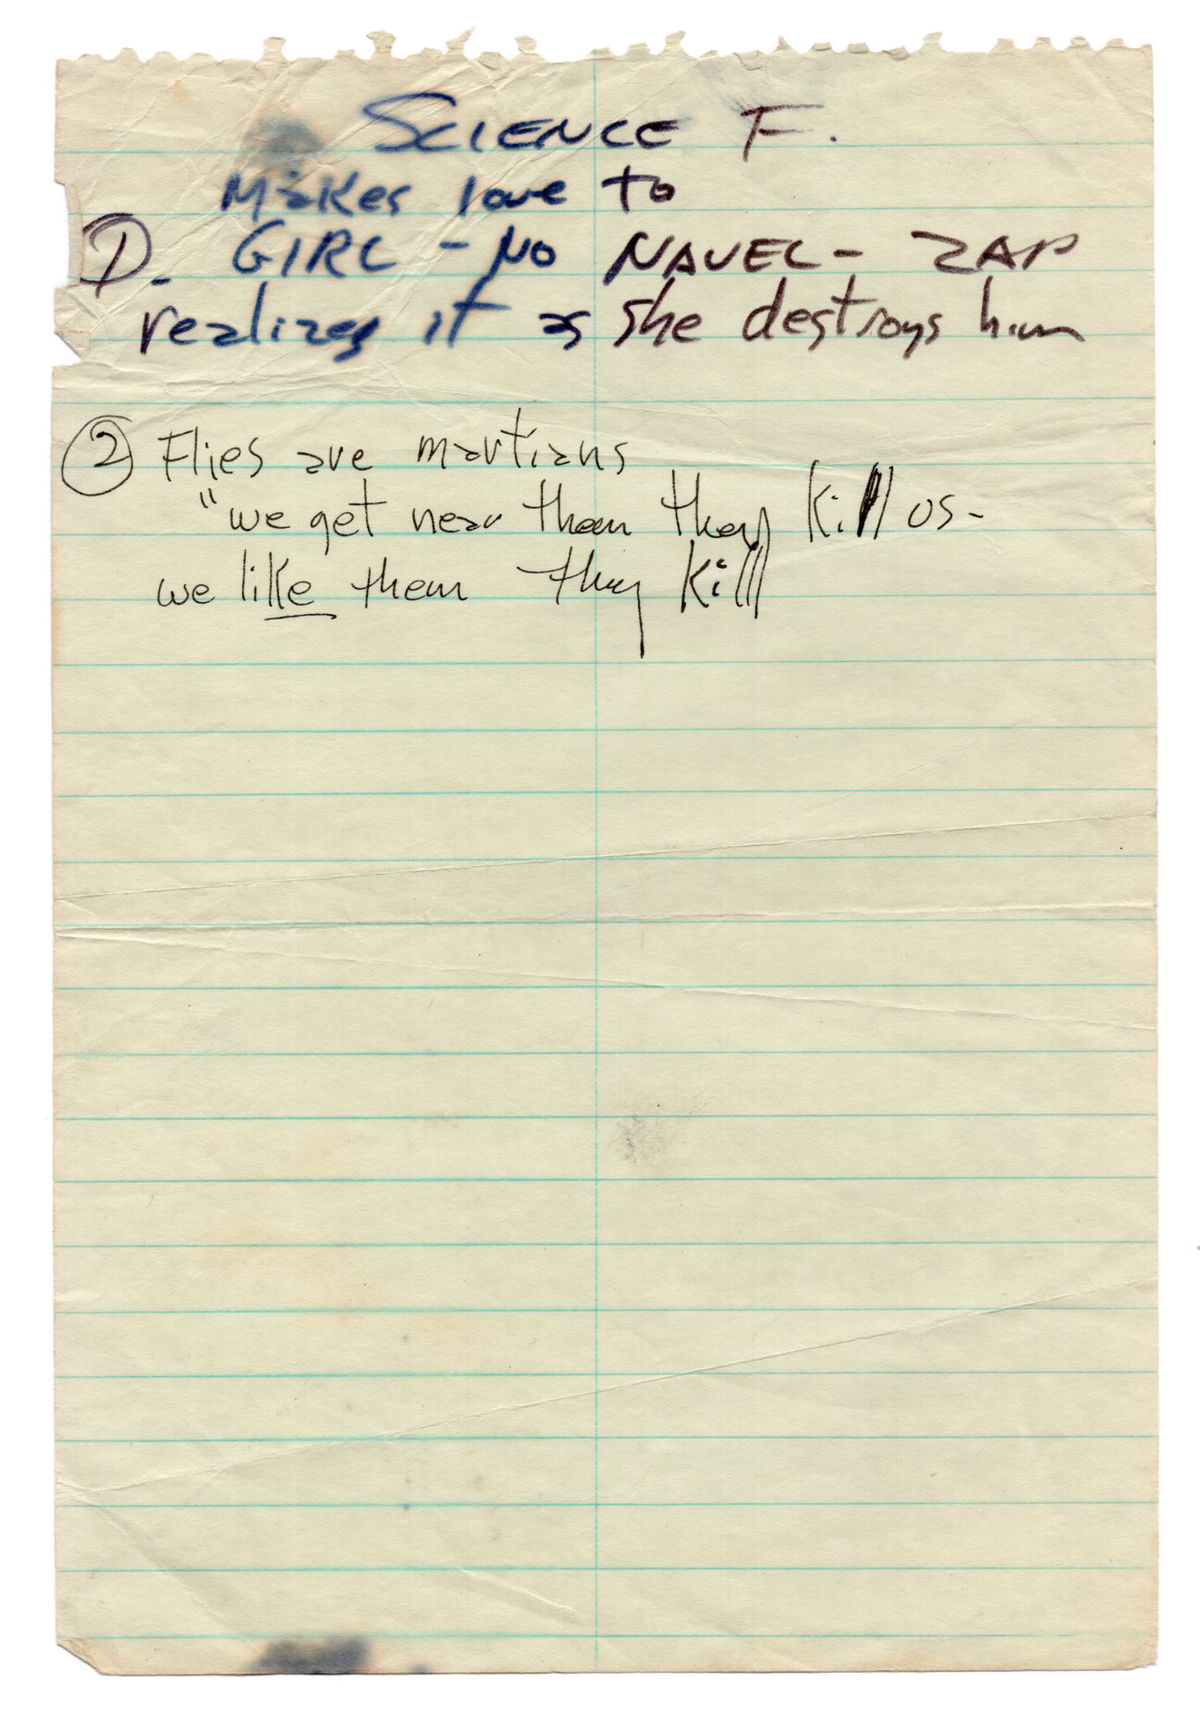 SCIENCE F.
Makes love to
1. GIRL - NO NAVEL - ZAP
realizes it as she destroys him
2 Flies are martians
"we get near them they kill us -
we like them they kill